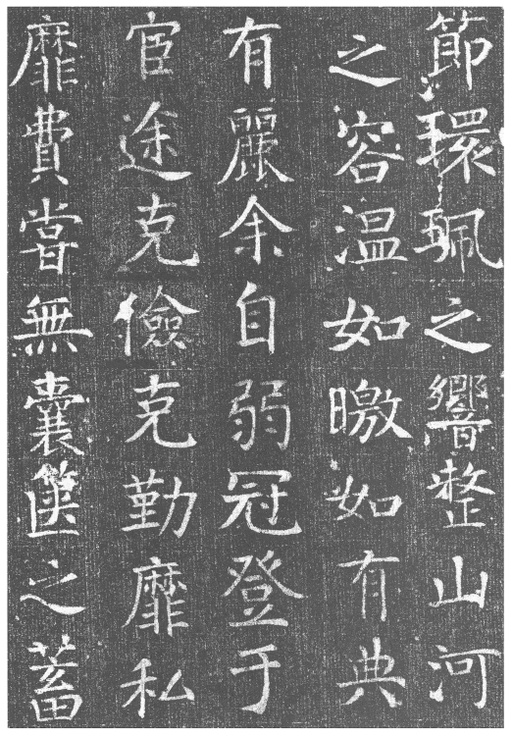 節環珮之響整山河
之容温如皦如有典
有麗余自弱冠登于
宦途克儉克勤靡私
靡費嘗無囊篋之蓄